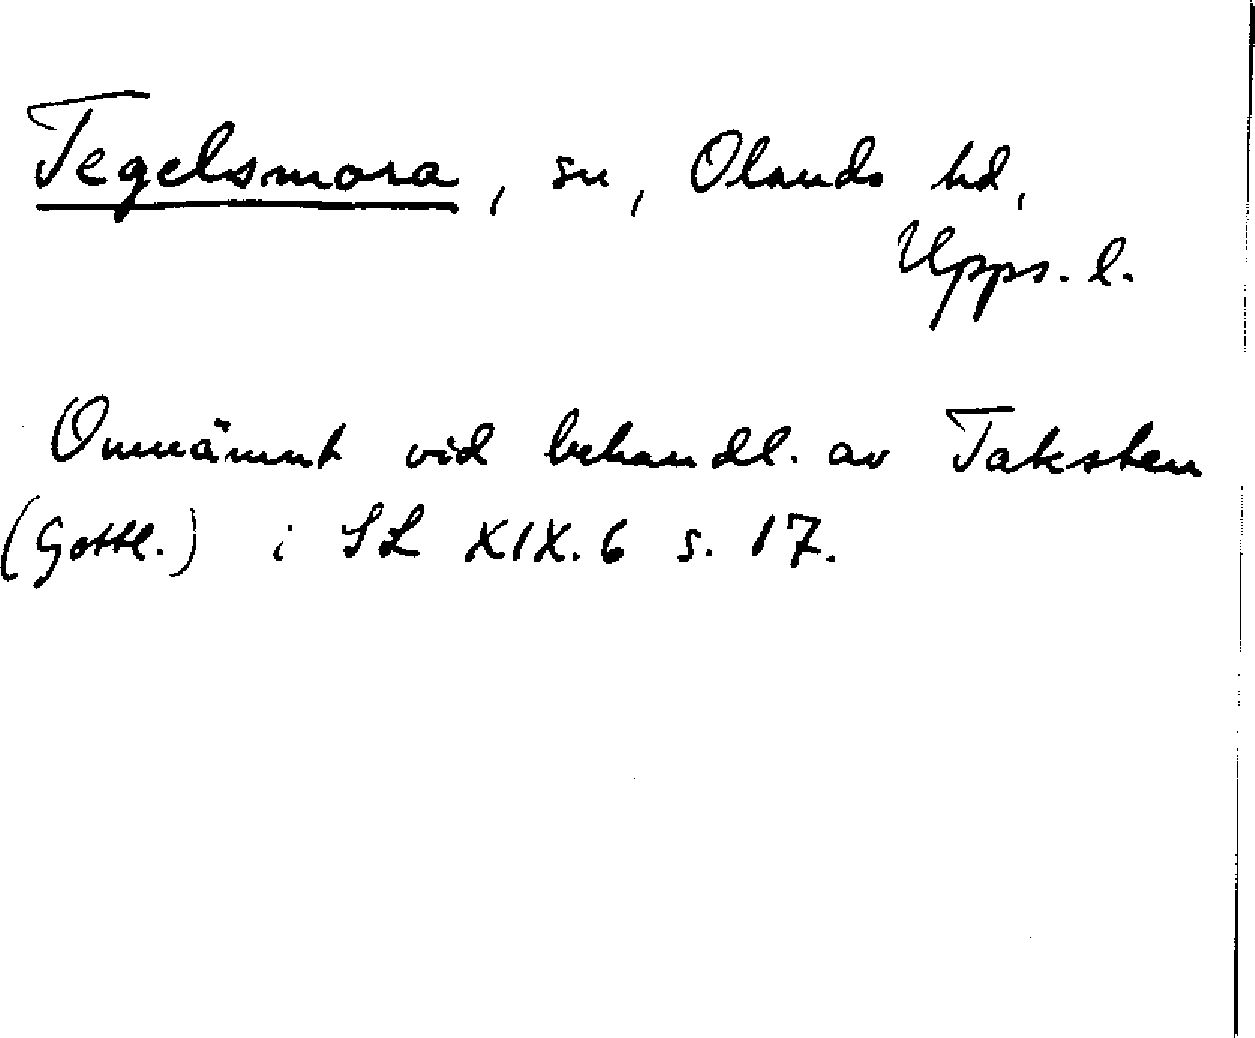 Tegelsmora, sn, Olands hd,
Upps. l.
Omnämnt vid behandl. av Taksten
(Gottl.) i SL XIX.6 s. 17.